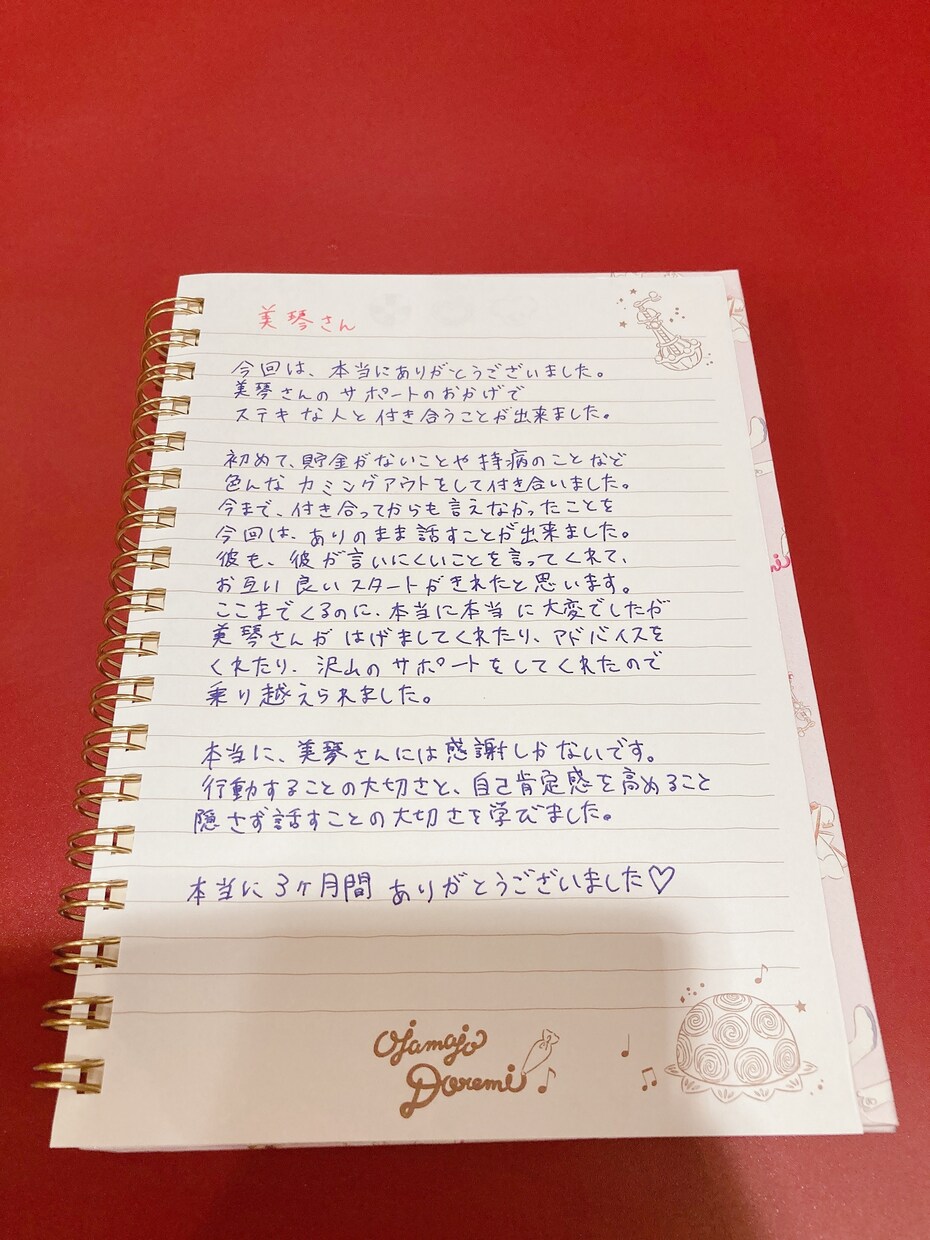 美琴さん
今回は、本当にありがとうございました。
美琴さんのサポートのおかげで
ステキな人と付き合うことが出来ました。
初めて、貯金がないことや持病のことなど
色んなカミングアウトをして付き合いました。
今まで、付き合ってからも言えなかったことを
今回は、ありのまま話すことが出来ました。
彼も、彼が言いにくいことを言ってくれて、
お互い良いスタートがきれたと思います。
ここまでくるのに、本当に本当に大変でしたが
美琴さんがはげましてくれたり、アドバイスを
くれたり、沢山のサポートをしてくれたので
乗り越えられました。
本当に、美琴さんには感謝しかないです。
行動することの大切さと、自己肯定感を高めること
隠さず話すことの大切さを学びました。
本当に3ヶ月間ありがとうございました♡
Ojamajo
Doremi